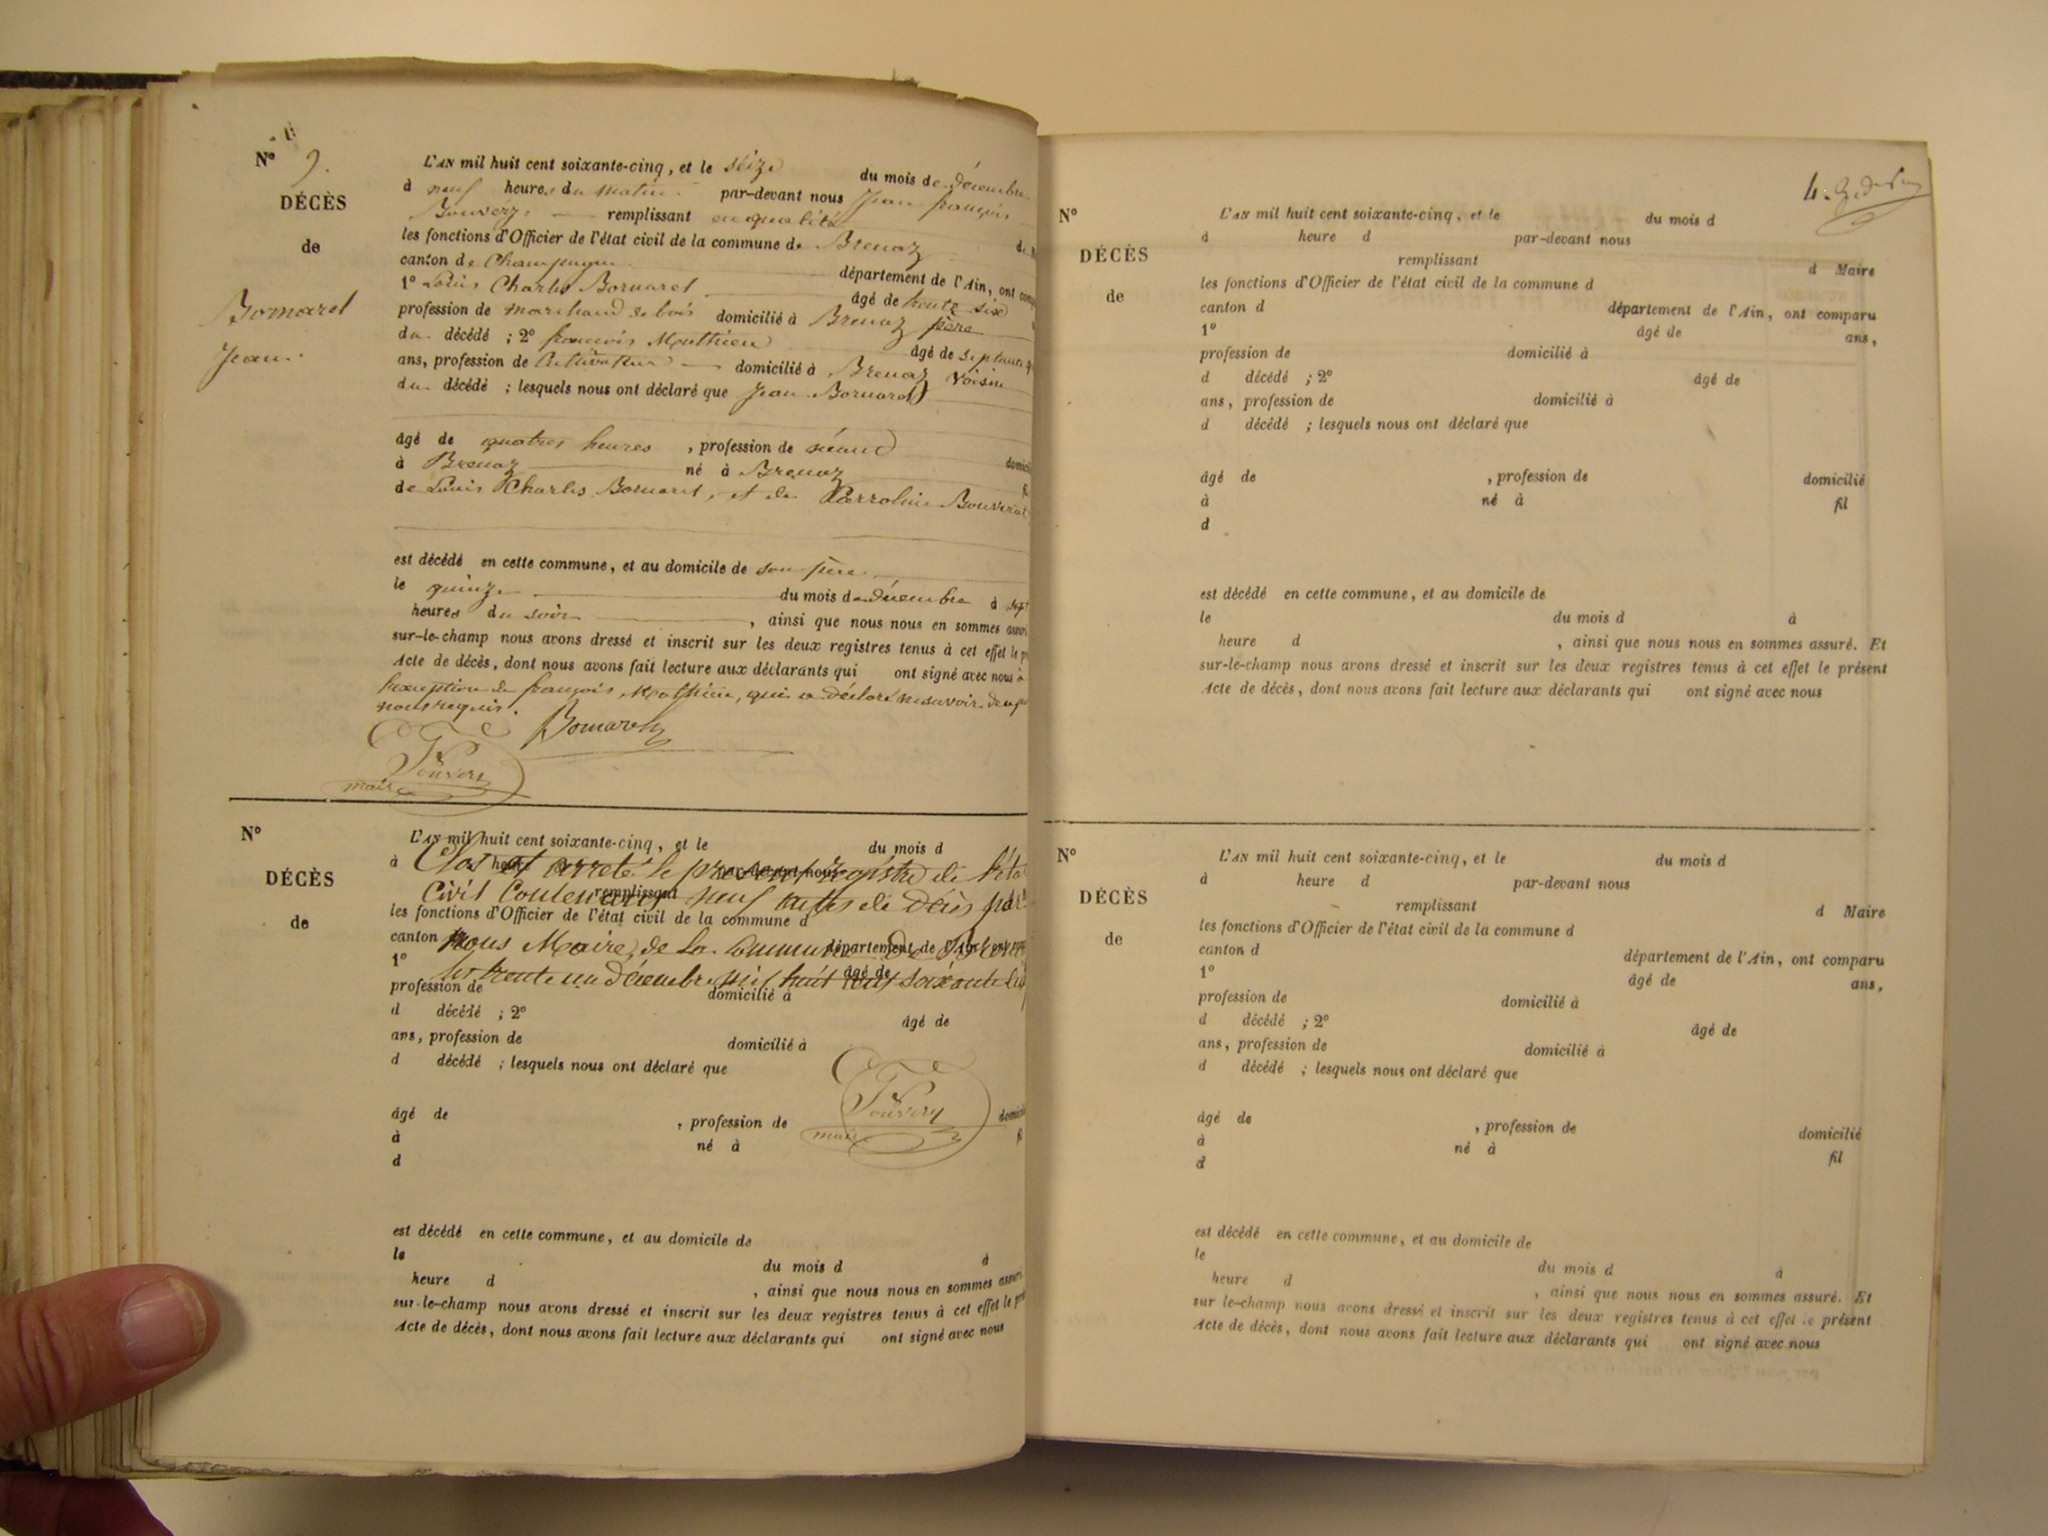 N° 9.
DÉCÈS
de
Bornarel
Jean.
L'AN mil huit cent soixante-cinq, et le seize du mois de décembre
à neuf heures du matin par-devant nous Jean françois
Bouvery remplissant en qualité de
les fonctions d'Officier de l'état civil de la commune de Brenaz
canton de Champagne département de l'Ain, ont comp
1° Louis Charles Bornarel âgé de trente six
profession de marchand de bois domicilié à Brenaz père
du décédé ; 2° françois Monthieu âgé de septante
ans, profession de Cultivateur domicilié à Brenaz Voisin
du décédé ; lesquels nous ont déclaré que Jean Bornarel
âgé de quatres heures , profession de néant domici
à Brenaz né à Brenaz fi
de Louis Charles Bornarel, et de Perroline
est décédé en cette commune, et au domicile de son père
le quinze du mois de décembre à sept
heures du soir , ainsi que nous nous en sommes assur
sur-le-champ nous avons dressé et inscrit sur les deux registres tenus à cet effet le pr
Acte de décès, dont nous avons fait lecture aux déclarants qui ont signé avec nous à
françois Monthieu, qui a déclaré ne savoir de ce
nous requis.
Bornarel
Bouvery
maire
N°
DÉCÈS
de
L'AN mil huit cent soixante-cinq, et le du mois d
à heure par-devant nous
Clos et arreté le présent régistre de l'éta
remplissant
Civil Contenant neuf actes de décès par
les fonctions d'Officier de l'état civil de la commune d
canton département de l'Ain
nous Maire de la Commune de Brenaz
1° âgé de
le trente un décembre mil huit cent soixante cinq
profession de domicilié à
d décédé ; 2° âgé de
ans, profession de domicilié à
d décédé ; lesquels nous ont déclaré que
Bouvery
maire
âgé de , profession de domicili
à né à fi
d
est décédé en cette commune, et au domicile de
le du mois d à
heure d , ainsi que nous nous en sommes assur
sur-le-champ nous avons dressé et inscrit sur les deux registres tenus à cet effet le pré
Acte de décès, dont nous avons fait lecture aux déclarants qui ont signé avec nous
4.
N°
DÉCÈS
de
L'AN mil huit cent soixante-cinq, et le du mois d
à heure d par-devant nous
remplissant d Maire
les fonctions d'Officier de l'état civil de la commune d
canton d département de l'Ain, ont comparu
1° âgé de ans,
profession de domicilié à
d décédé ; 2° âgé de
ans, profession de domicilié à
d décédé ; lesquels nous ont déclaré que
âgé de , profession de domicilié
à né à fil
d
est décédé en cette commune, et au domicile de
le du mois d à
heure d , ainsi que nous nous en sommes assuré. Et
sur-le-champ nous avons dressé et inscrit sur les deux registres tenus à cet effet le présent
Acte de décès, dont nous avons fait lecture aux déclarants qui ont signé avec nous
N°
DÉCÈS
de
L'AN mil huit cent soixante-cinq, et le du mois d
à heure d par-devant nous
remplissant d Maire
les fonctions d'Officier de l'état civil de la commune d
canton d département de l'Ain, ont comparu
1° âgé de ans,
profession de domicilié à
d décédé ; 2° âgé de
ans, profession de domicilié à
d décédé ; lesquels nous ont déclaré que
âgé de , profession de domicilié
à né à fil
d
est décédé en cette commune, et au domicile de
le du mois d à
heure d , ainsi que nous nous en sommes assuré. Et
sur le-champ nous avons dressé et inscrit sur les deux registres tenus à cet effet le présent
Acte de décès, dont nous avons fait lecture aux déclarants qui ont signé avec nous